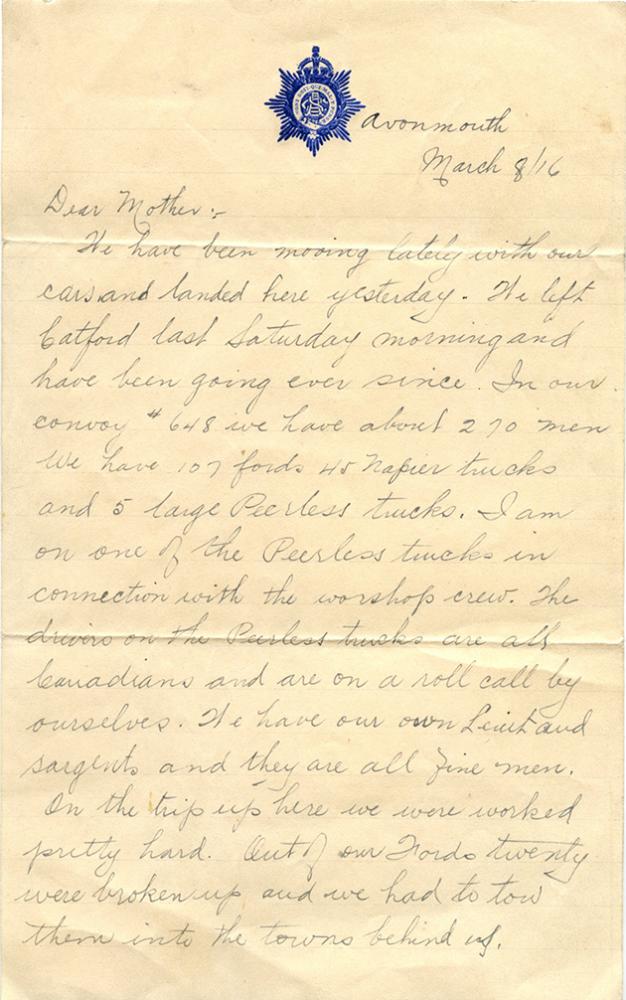 Avonmouth
March 8/16
Dear Mother:-
We have been moving lately with our
cars and landed here yesterday. We left
Catford last Saturday morning and
have been going ever since. In our
convoy # 648 we have about 270 men
We have 107 fords 45 Napier trucks
and 5 large Peerless trucks. I am
on one of the Peerless trucks in
connection with the worshop crew. The
drivers on the Peerless trucks are all
Canadians and are on a roll call by
ourselves. We have our own Lieut and
sargents and they are all fine men.
On the trip up here we were worked
pretty hard. Out of our Fords twenty
were broken up and we had to tow
them into the towns behind us.